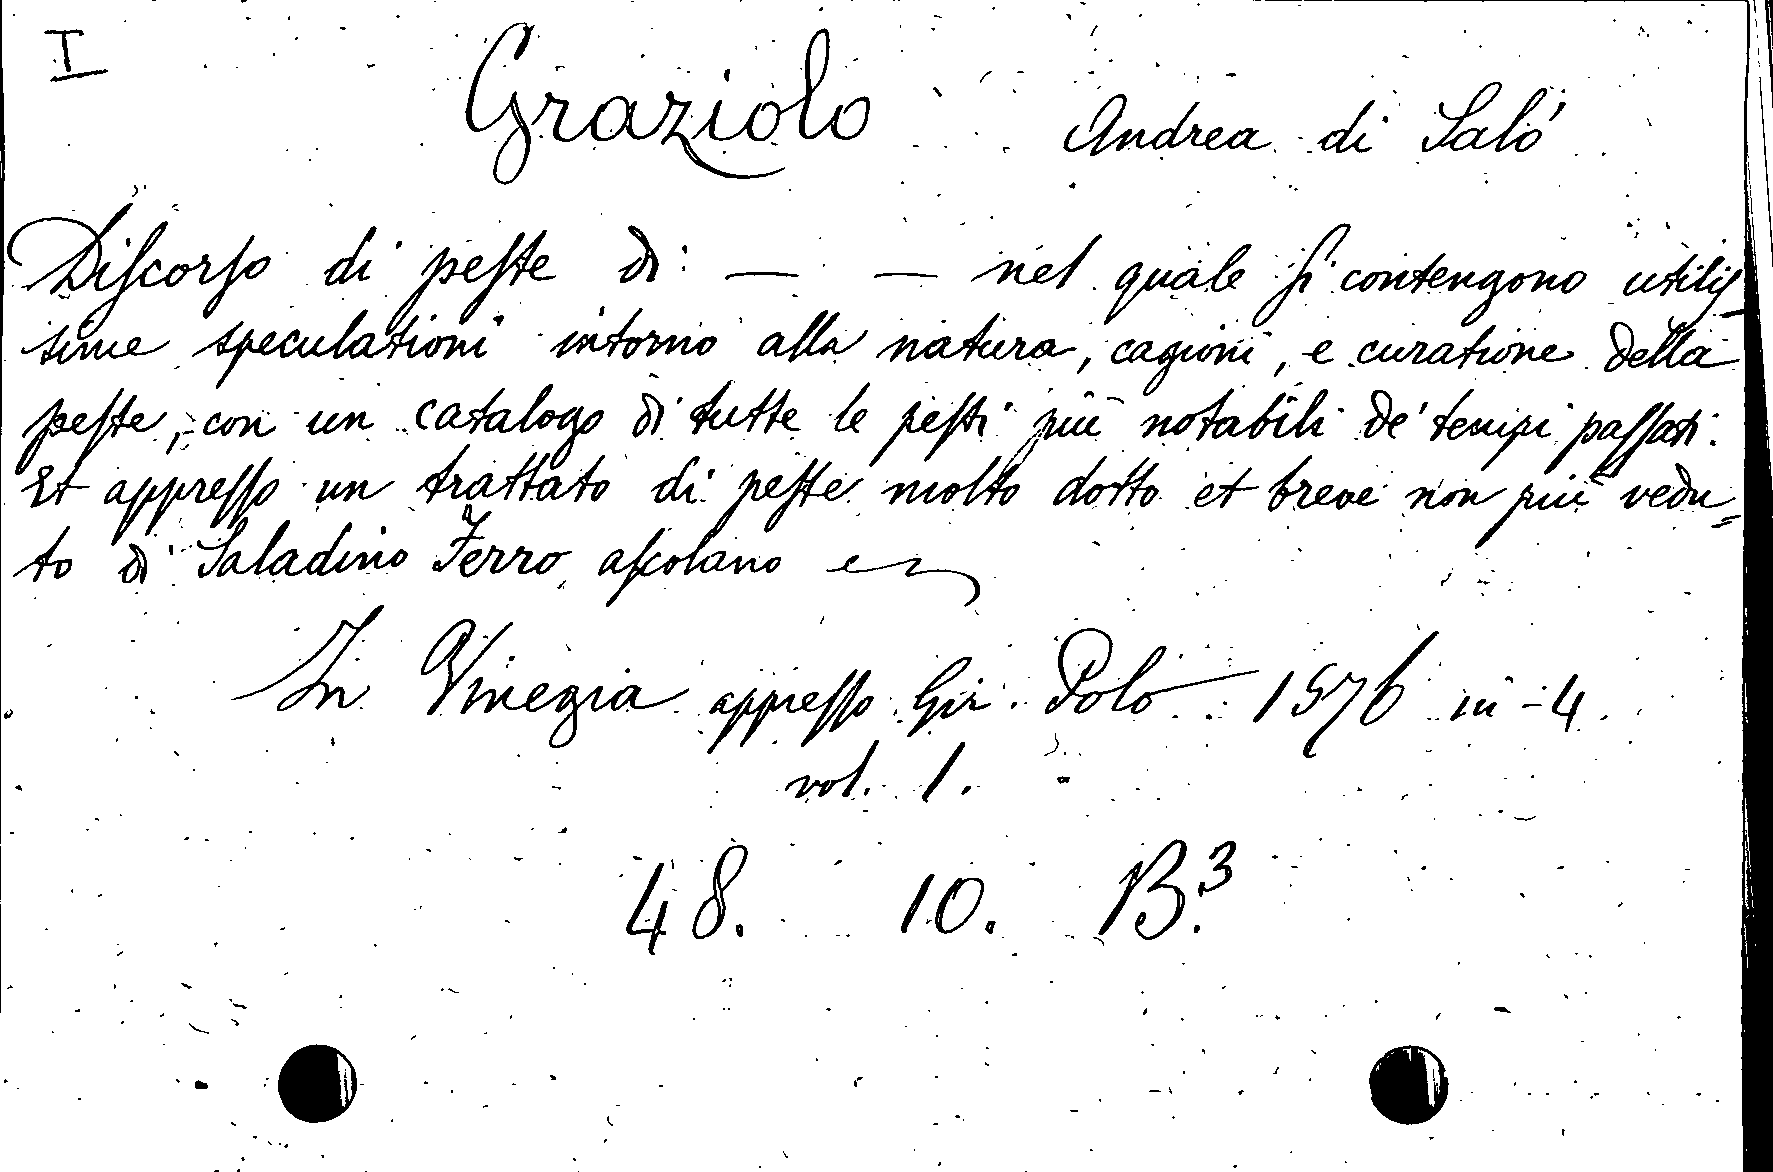 I
Graziolo Andrea di Salò
Diſcorſo di peſte di — — nel quale ſi contengono utiliſ-
sime speculationi intorno alla natura, cagioni, e curatione della
peſte, con un catalogo di tutte le peſti più notabili de' tempi paſſati.
Et appreſſo un trattato di peſte molto dotto et breve non più vedu=
to di Saladino Ferro aſcolano
In Vinegia appreſſo Gir. Polo 1576 in-4.
vol. 1.
48. 10. B.³